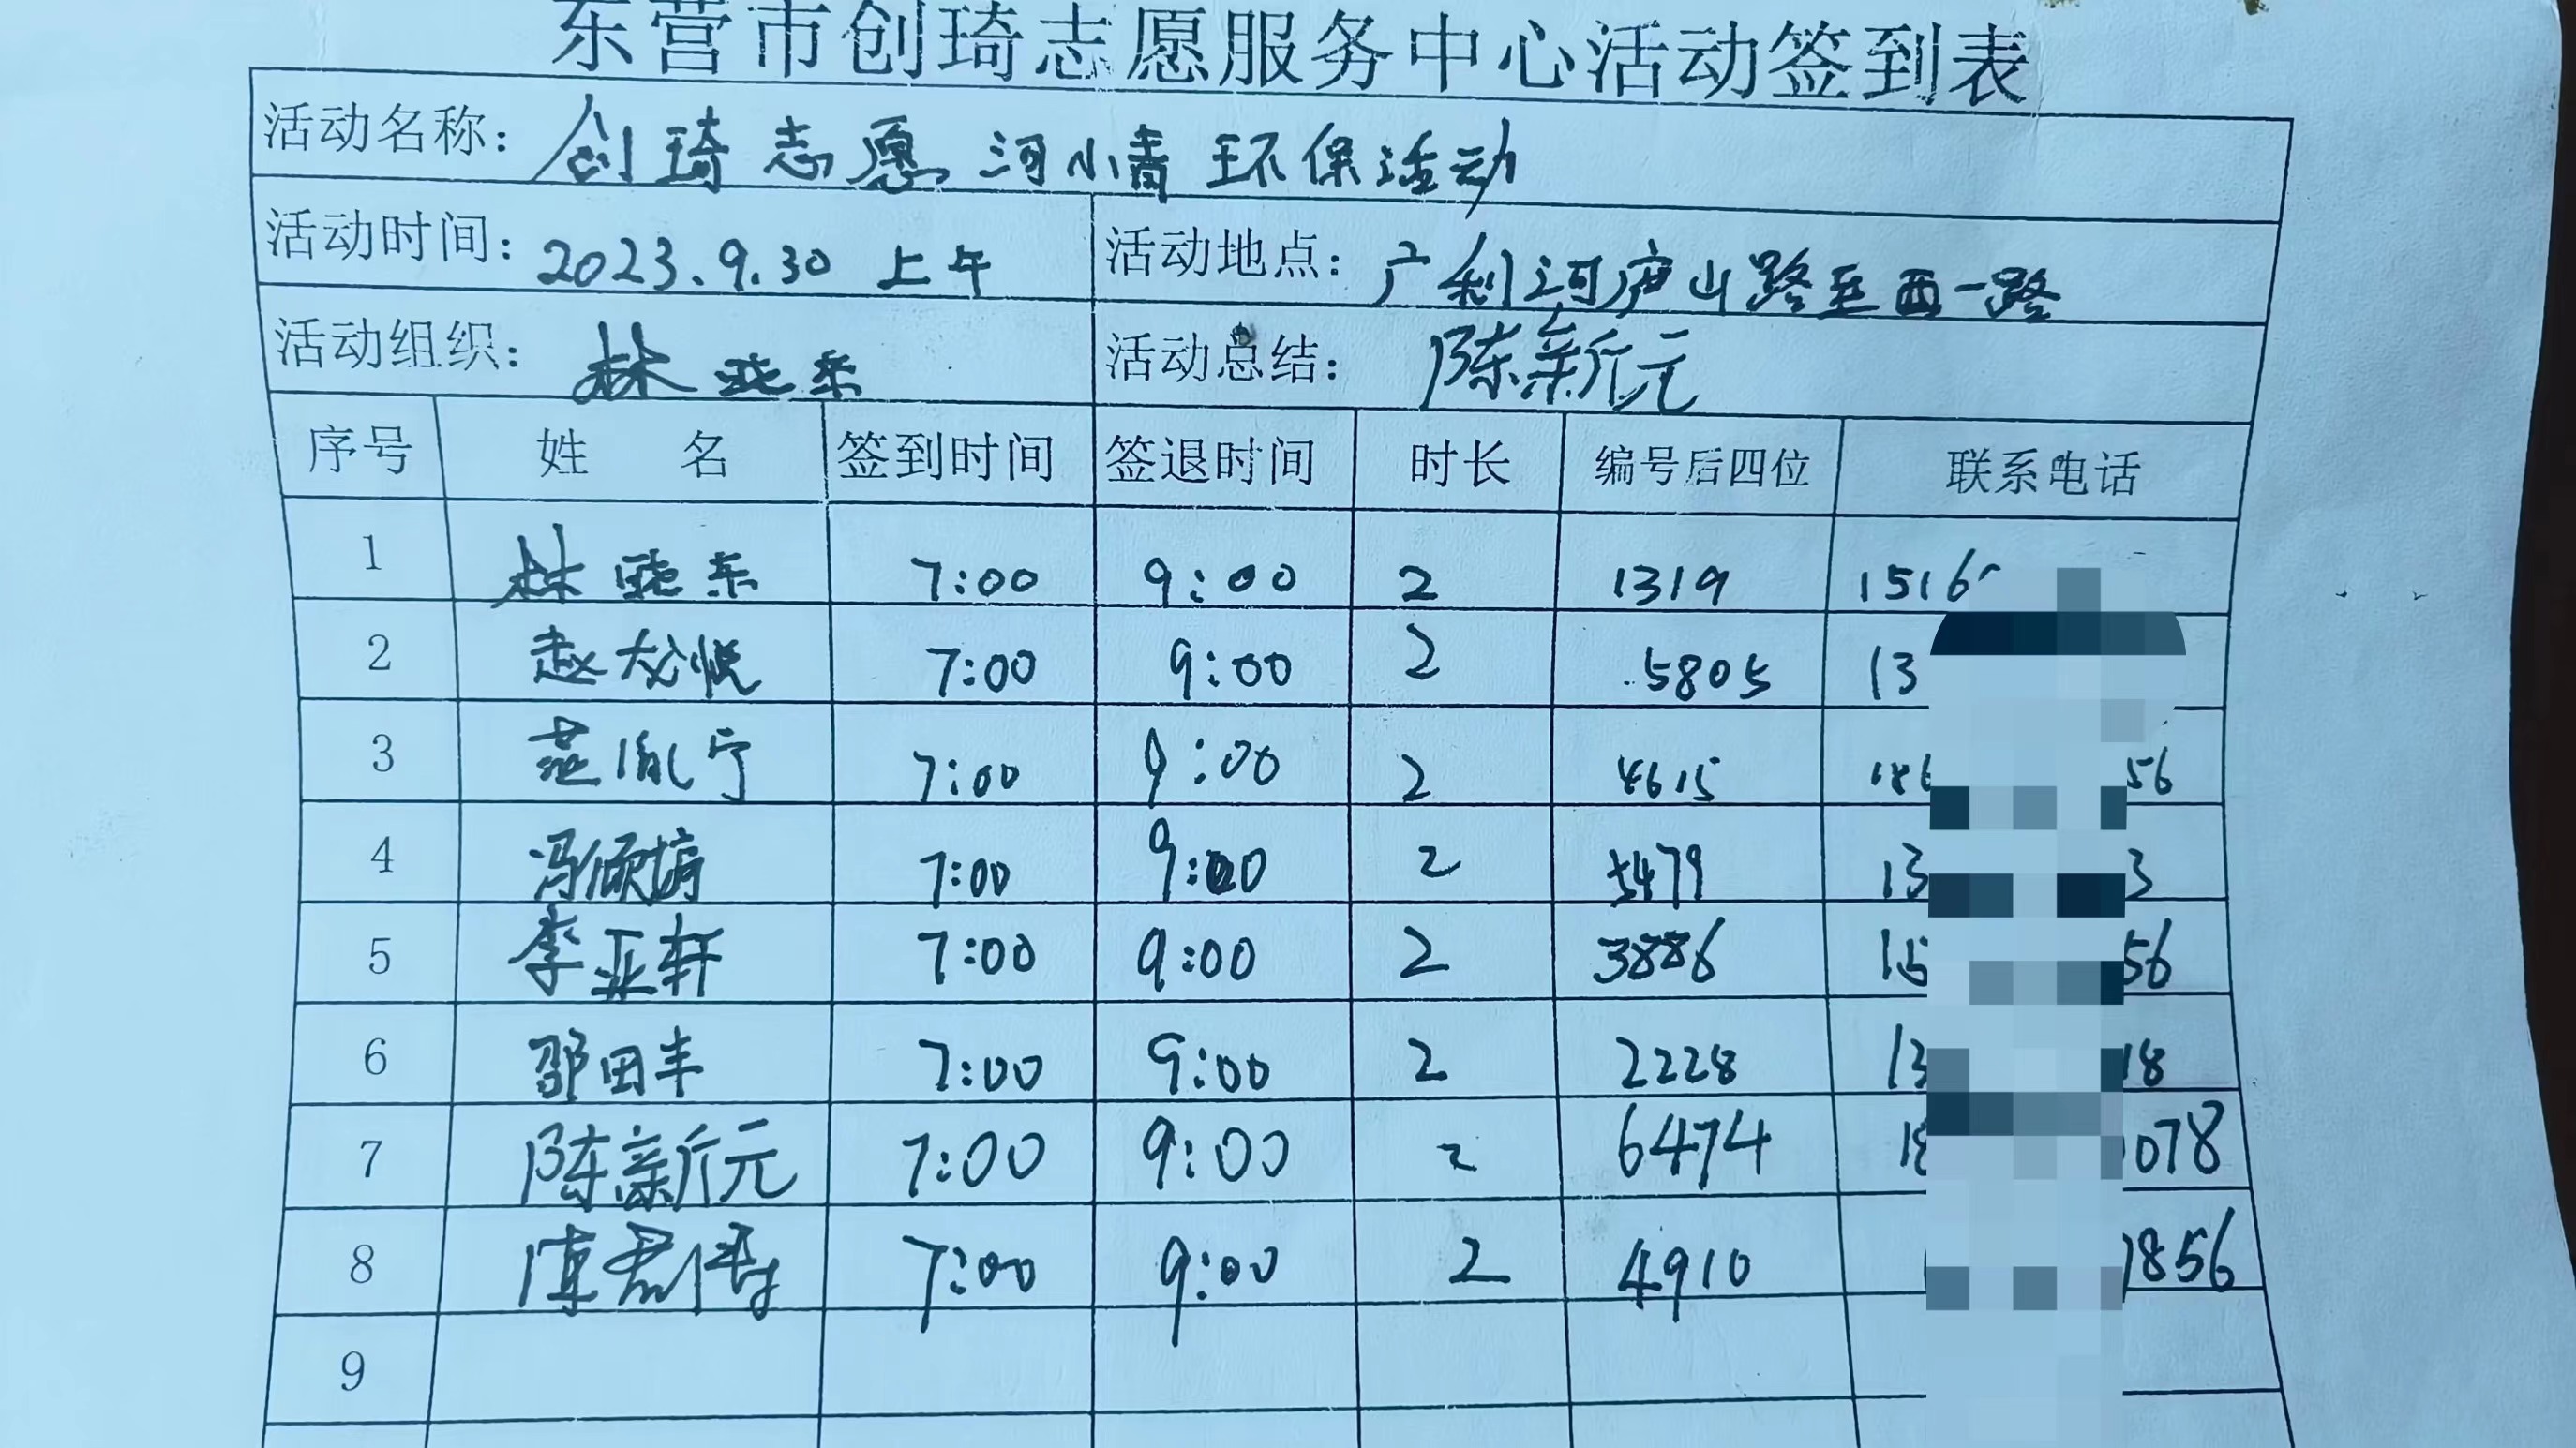 东营市创琦志愿服务中心活动签到表
活动名称：创琦志愿河小青环保活动
活动时间：2023.9.30 上午 活动地点：广利河庐山路至西一路
活动组织：林晓东 活动总结：陈新元
序号 姓 名 签到时间 签退时间 时长 编号后四位 联系电话
1 林晓东 7:00 9:00 2 1319 1516
2 赵 悦 7:00 9:00 2 5805 13
3 范胤宁 7:00 9:00 2 4615 186 56
4 冯倾 7:00 9:00 2 5479 13 3
5 李亚轩 7:00 9:00 2 3886 15 56
6 邵田丰 7:00 9:00 2 2228 13 18
7 陈新元 7:00 9:00 2 6474 18 078
8 陈君 7:00 9:00 2 4910 856
9